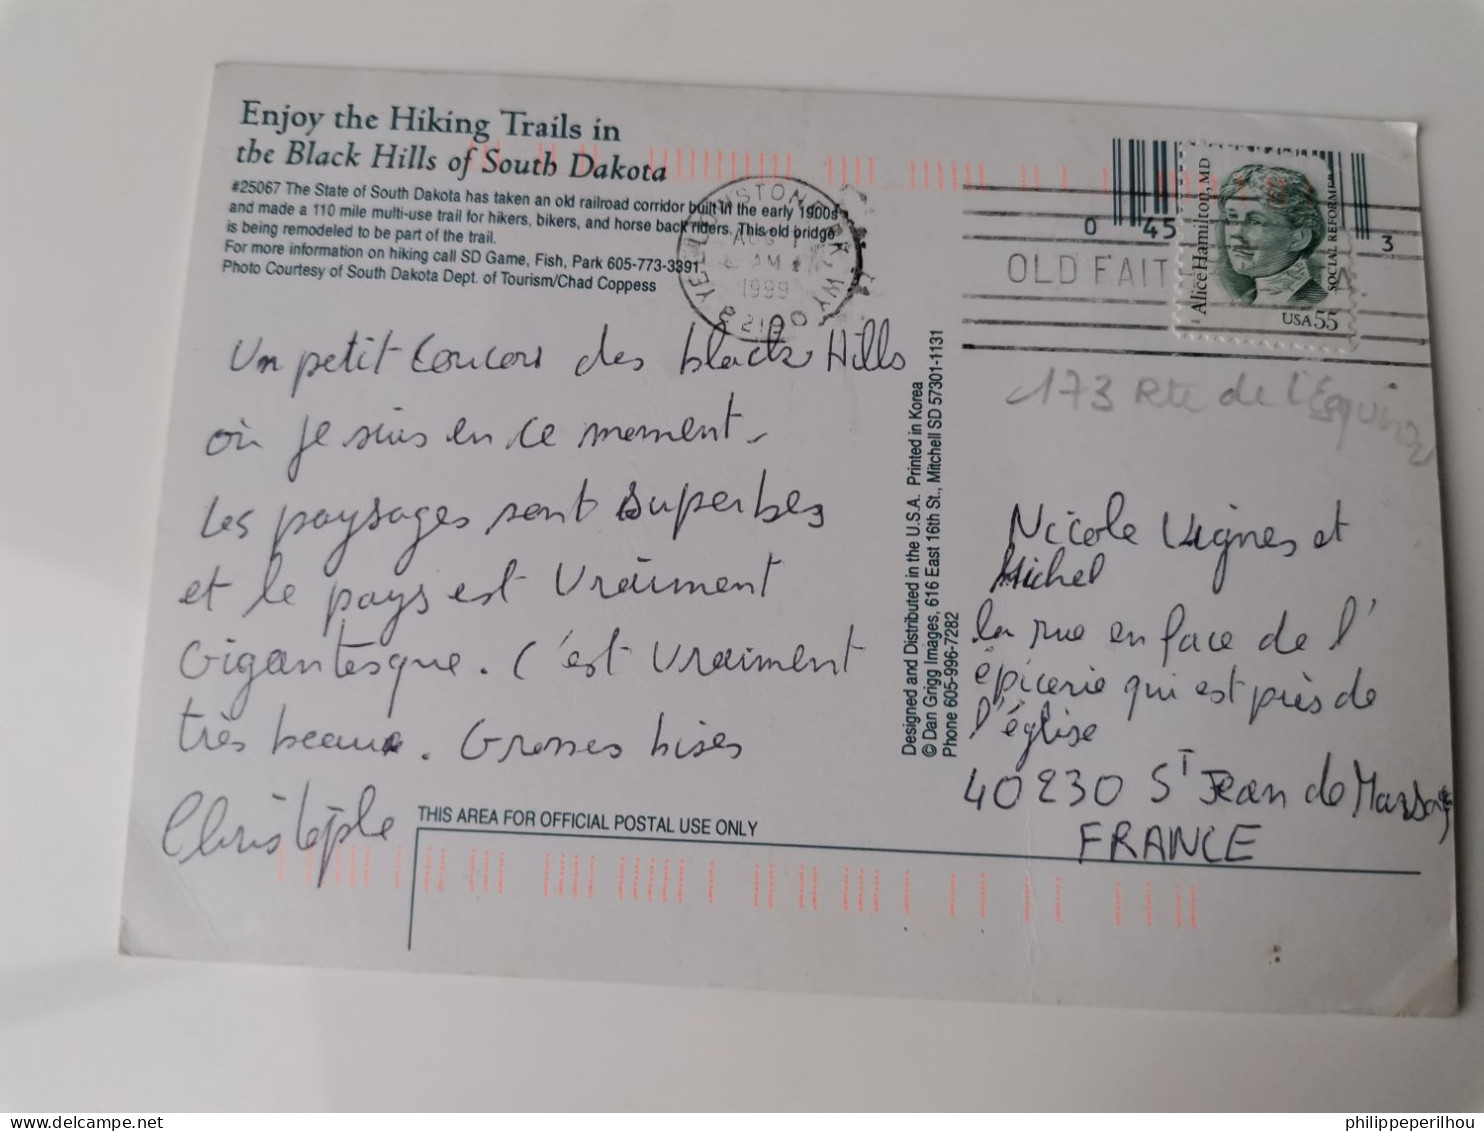 Enjoy the Hiking Trails in
the Black Hills of South Dakota
#25067 The State of South Dakota has taken an old railroad corridor built in the early 1900s
and made a 110 mile multi-use trail for hikers, bikers, and horse back riders. This old bridge
is being remodeled to be part of the trail.
For more information on hiking call SD Game, Fish, Park 605-773-3391
Photo Courtesy of South Dakota Dept. of Tourism/Chad Coppess
YELLOWSTONE PK, WYO
AUG
AM
1999
821
0 45
3
OLD FAIT
Alice Hamilton, MD
SOCIAL REFORMER
USA 55
Un petit coucou des black Hills
où je suis en ce moment.
Les paysages sont superbes
et le pays est vraiment
Gigantesque. C'est vraiment
très beau. Grosses bises
Christophe
Designed and Distributed in the U.S.A. Printed in Korea
© Dan Grigg Images, 616 East 16th St., Mitchell SD 57301-1131
Phone 605-996-7282
173 Rte de l'
Nicole Vignes et
Michel
la rue en face de l'
épicerie qui est près de
l'église
40230 St Jean de Marsacq
FRANCE
THIS AREA FOR OFFICIAL POSTAL USE ONLY
philippeperilhou